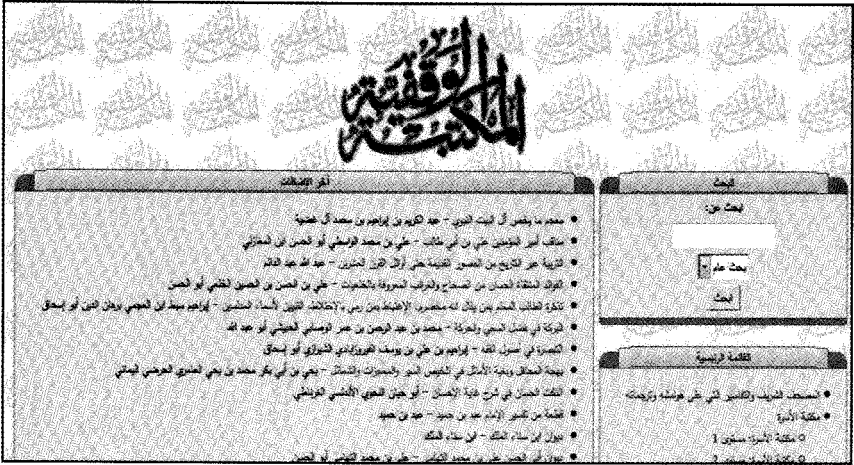 المكتبة الوقفية
آخر الإضافات
معجم ما يخص آل البيت النبوي – عبد الكريم بن إبراهيم بن محمد آل غضية
مناقب أمير المؤمنين علي بن أبي طالب – علي بن محمد الواسطي أبو الحسن ابن المغازلي
التربية عبر التاريخ من العصور القديمة حتى أوائل القرن العشرين – عبد الله عبد الدائم
الفوائد المنتقاة الحسان من الصحاح والغرائب المعروفة بالخلعيات – علي بن الحسن بن الحسين الخلعي أبو الحسن
تذكرة الطالب المعلم بمن يقال انه مخضرم، الإغتباط بمن رمي بالاختلاط، التبيين لأسماء المدلسين – إبراهيم سبط ابن العجمي برهان الدين أبو إسحاق
البركة في فضل السعي والحركة – محمد بن عبد الرحمن بن عمر الوصابي الحبيشي أبو عبد الله
التبصرة في أصول الفقه – إبراهيم بن علي بن يوسف الفيروزابادي الشيرازي أبو إسحاق
بهجة المحافل وبغية الأماثل في تلخيص السير والمعجزات والشمائل – يحي بن أبي بكر محمد بن يحي العامري الحرضي اليماني
النكت الحسان في شرح غاية الإحسان – أبو حيان النحوي الأندلسي الغرناطي
قطعة من تفسير الإمام عبد بن حميد – عبد بن حميد
ديوان ابن سناء الملك – ابن سناء الملك
ديوان أبي الحسن علي بن محمد التهامي – علي بن محمد التهامي أبو الحسن
البحث
ابحث عن:
بحث عام
ابحث
القائمة الرئيسية
المصحف الشريف والتفاسير التي على هوامشه وترجماته
مكتبة الأسرة
مكتبة الأسرة: مستوى 1
مكتبة الأسرة: مستوى 2